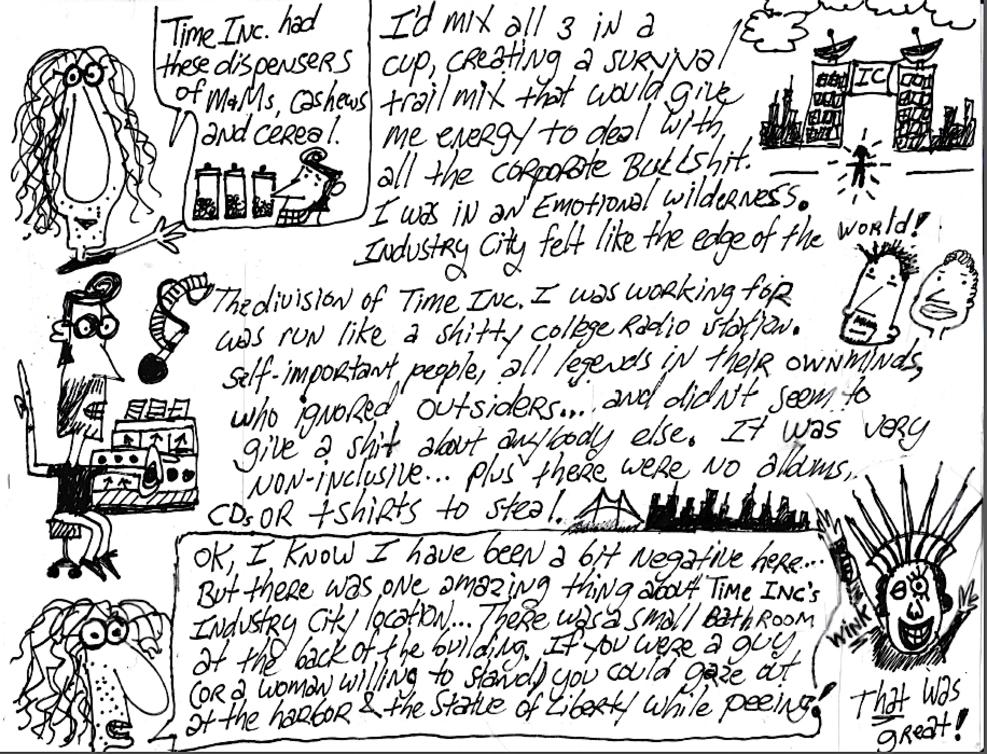 Time Inc. had
these dispensers
of M&Ms, cashews
and cereal.
I'd mix all 3 in a
cup, creating a survival
trail mix that would give
me energy to deal with
all the corporate Bullshit.
I was in an Emotional wilderness.
Industry City felt like the edge of the world!
IC
The division of Time Inc. I was working for
was run like a shitty college Radio station.
self-important people, all legends in their own minds,
who ignored outsiders... and didn't seem to
give a shit about anybody else. It was very
non-inclusive... plus there were no albums,
CDs OR t-shirts to steal!
OK, I know I have been a bit negative here...
But there was one amazing thing about Time Inc's
Industry City location... There was a small Bathroom
at the back of the building. If you were a guy
(or a woman willing to stand) you could gaze out
at the harbor & the Statue of Liberty while peeing!
WINK
That was
great!